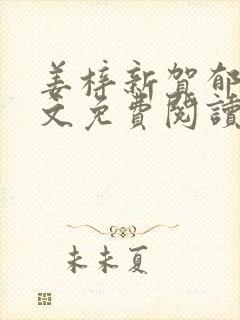 姜梓新賀郁
文免費閱讀
未未夏